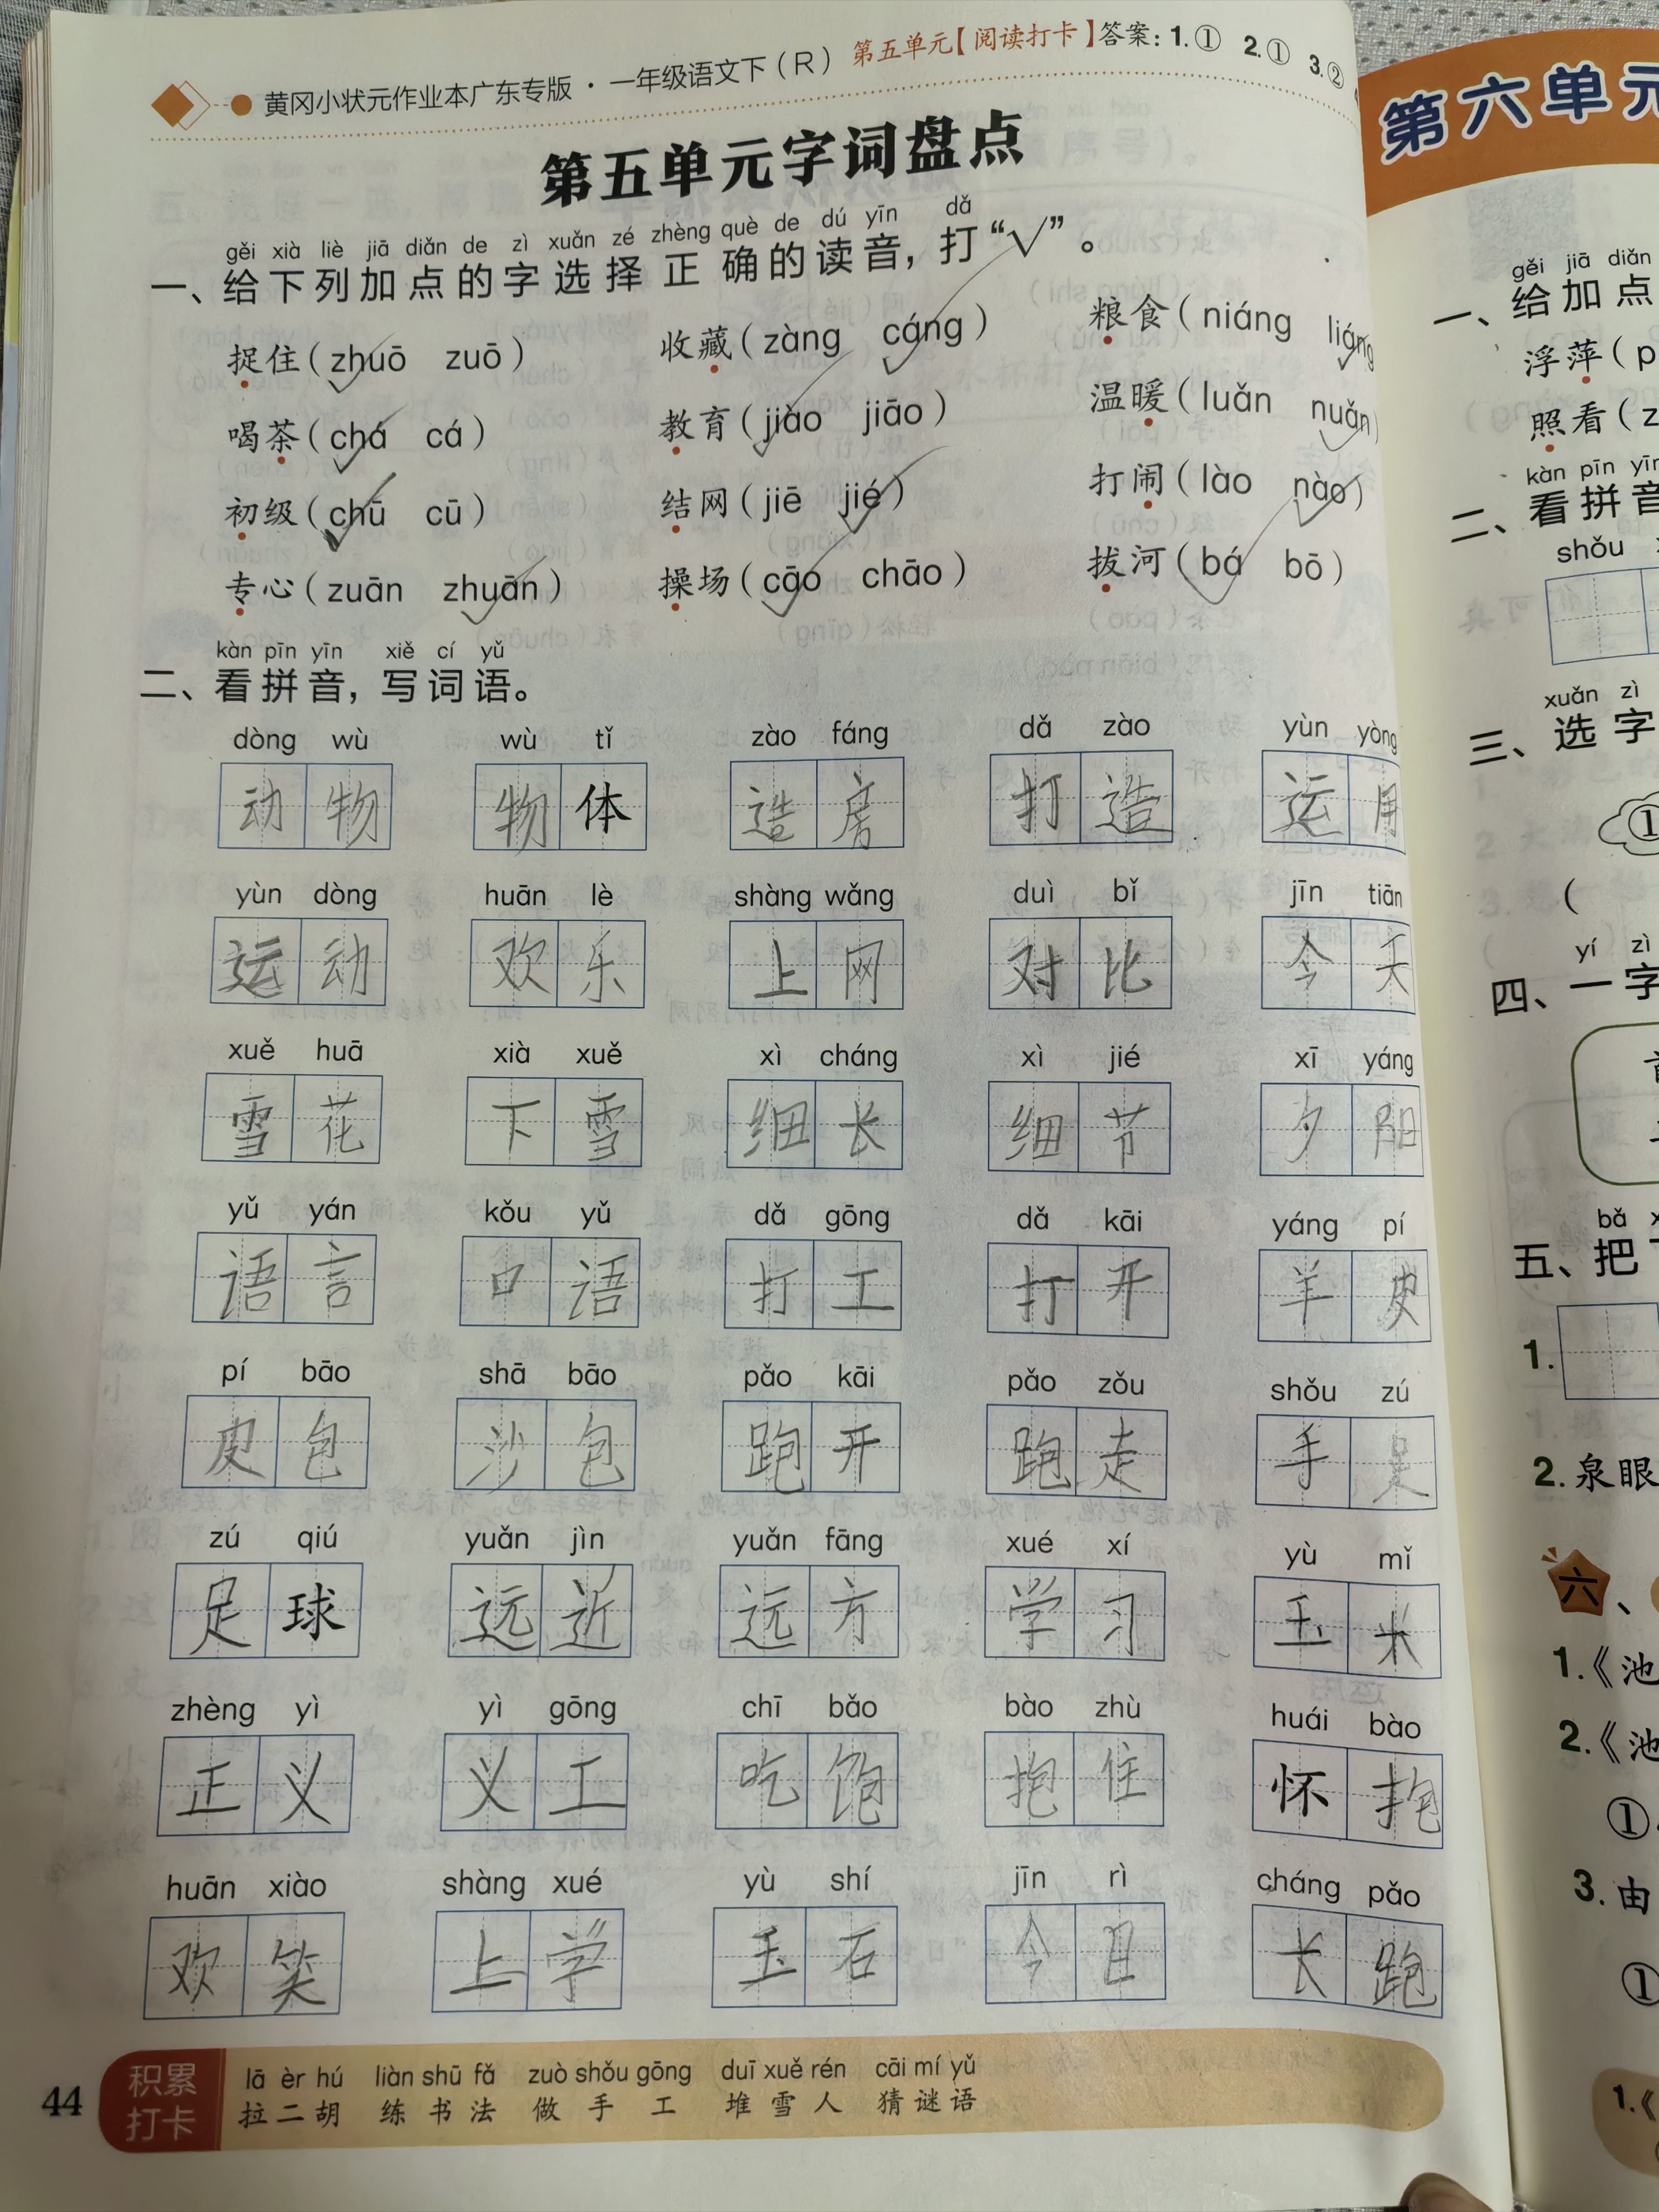 黄冈小状元作业本广东专版·一年级语文下（R） 第五单元【阅读打卡】答案：1.① 2.① 3.②
第五单元字词盘点
gěi xià liè jiā diǎn de zì xuǎn zé zhèng què de dú yīn dǎ
一、给下列加点的字选择正确的读音，打“√”。
捉住（zhuō✓ zuō） 收藏（zàng cáng✓） 粮食（niáng liáng✓
喝茶（chá✓ cá） 教育（jiào✓ jiāo） 温暖（luǎn nuǎn✓）
初级（chū✓ cū） 结网（jiē jié✓） 打闹（lào nào✓）
专心（zuān zhuān✓） 操场（cāo✓ chāo） 拔河（bá✓ bō）
kàn pīn yīn xiě cí yǔ
二、看拼音，写词语。
dòng wù wù tǐ zào fáng dǎ zào yùn yòng
动物 物体 造房 打造 运用
yùn dòng huān lè shàng wǎng duì bǐ jīn tiān
运动 欢乐 上网 对比 今天
xuě huā xià xuě xì cháng xì jié xī yáng
雪花 下雪 细长 细节 夕阳
yǔ yán kǒu yǔ dǎ gōng dǎ kāi yáng pí
语言 口语 打工 打开 羊皮
pí bāo shā bāo pǎo kāi pǎo zǒu shǒu zú
皮包 沙包 跑开 跑走 手足
zú qiú yuǎn jìn yuǎn fāng xué xí yù mǐ
足球 远近 远方 学习 玉米
zhèng yì yì gōng chī bǎo bào zhù huái bào
正义 义工 吃饱 抱住 怀抱
huān xiào shàng xué yù shí jīn rì cháng pǎo
欢笑 上学 玉石 今日 长跑
44
积累
打卡
lā èr hú liàn shū fǎ zuò shǒu gōng duī xuě rén cāi mí yǔ
拉二胡 练书法 做手工 堆雪人 猜谜语
第六单元
gěi jiā diǎn
一、给加点
浮萍（p
照看（z
kàn pīn yīn
二、看拼音
shǒu
xuǎn zì
三、选字
①
（
yí zì
四、一字
bǎ
五、把
1.
2.泉眼
六、
1.《池
2.《池
①
3.由
①
1.《